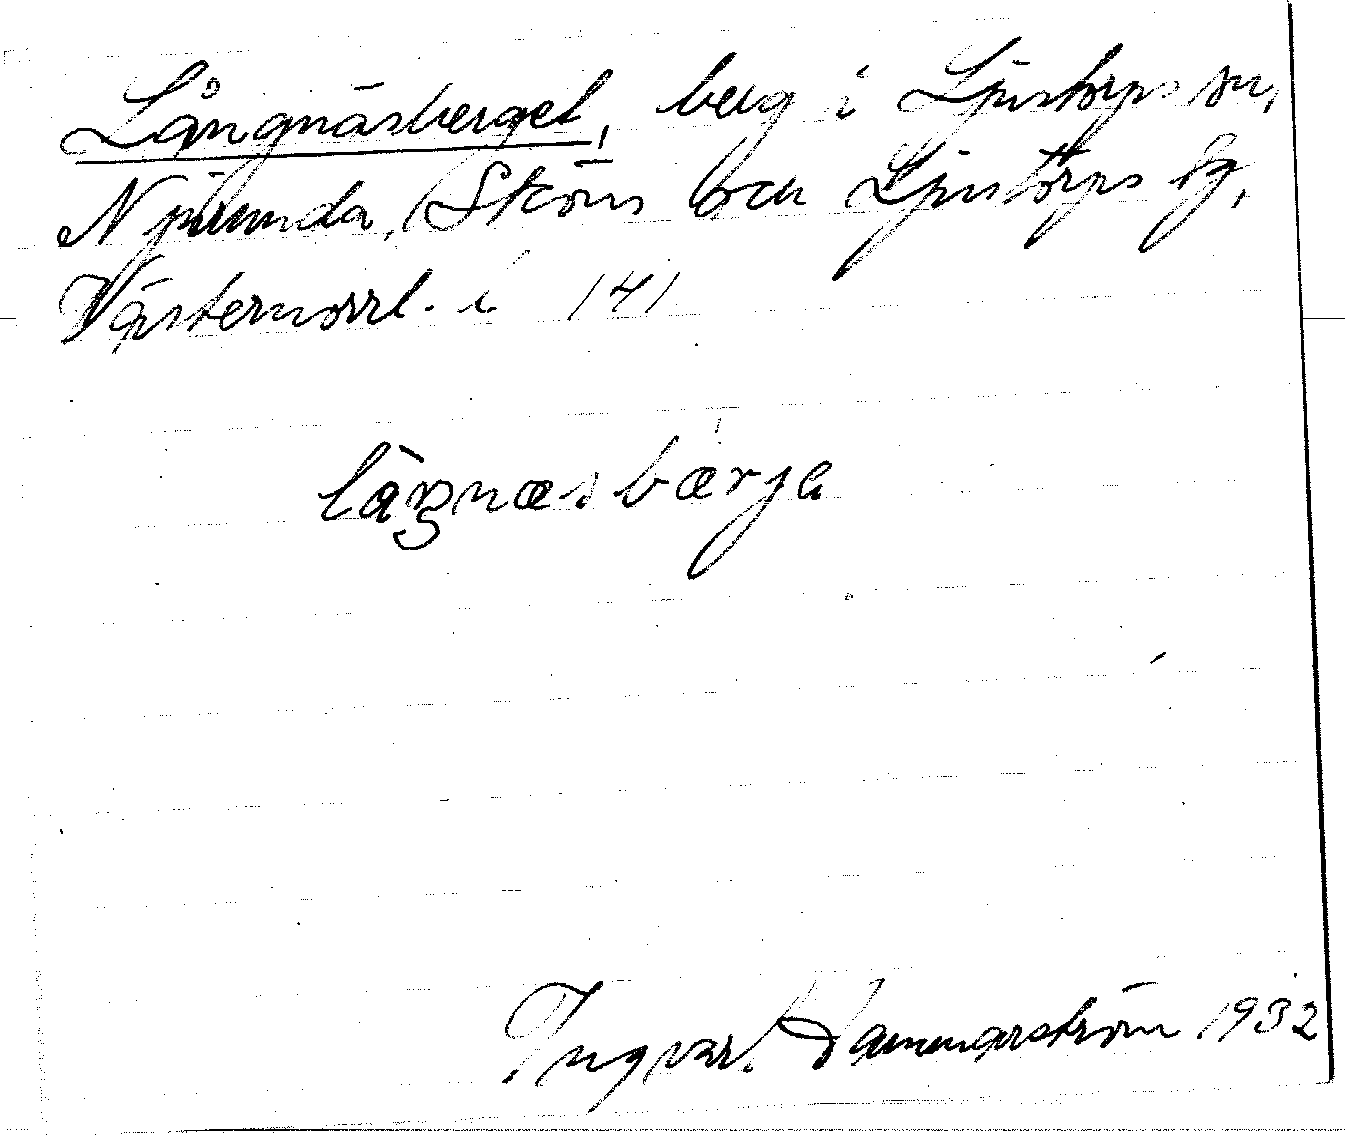 Långnäsberget, berg i Ljustorps sn,
Njurunda, Sköns och Ljustorps tg,
Västernorrl. l. 141
låŋnæsbærja
Ingvar Hammarström 1932